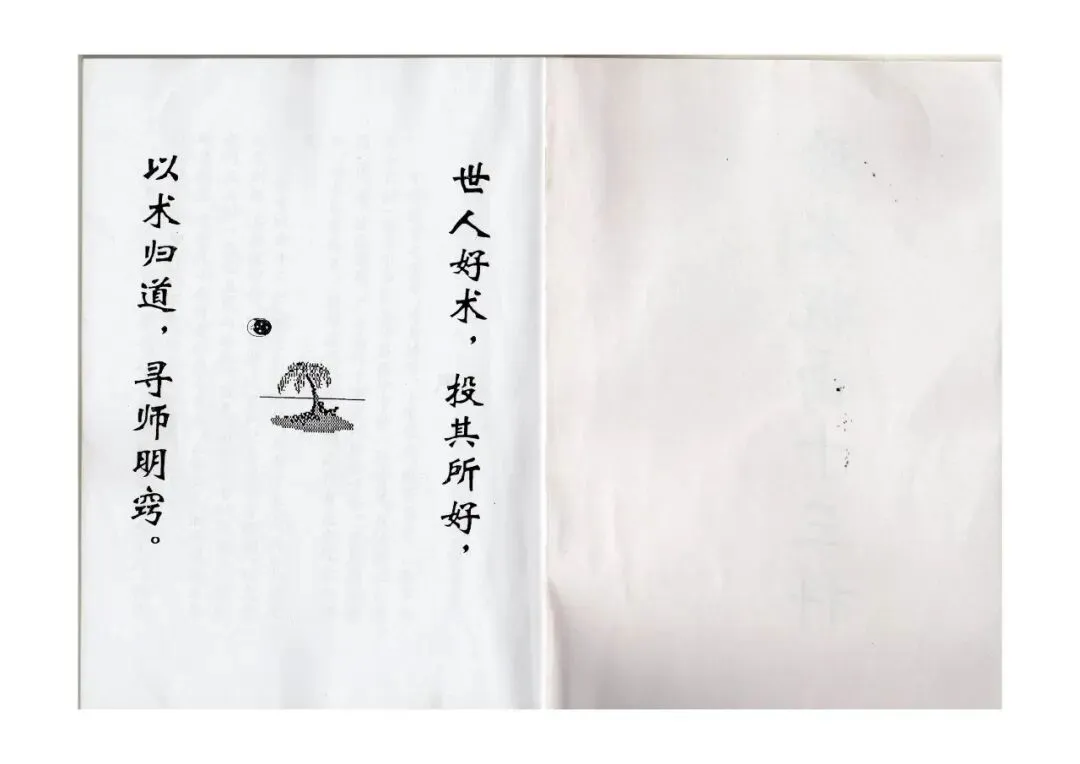 世人好术，投其所好，
以术归道，寻师明窍。